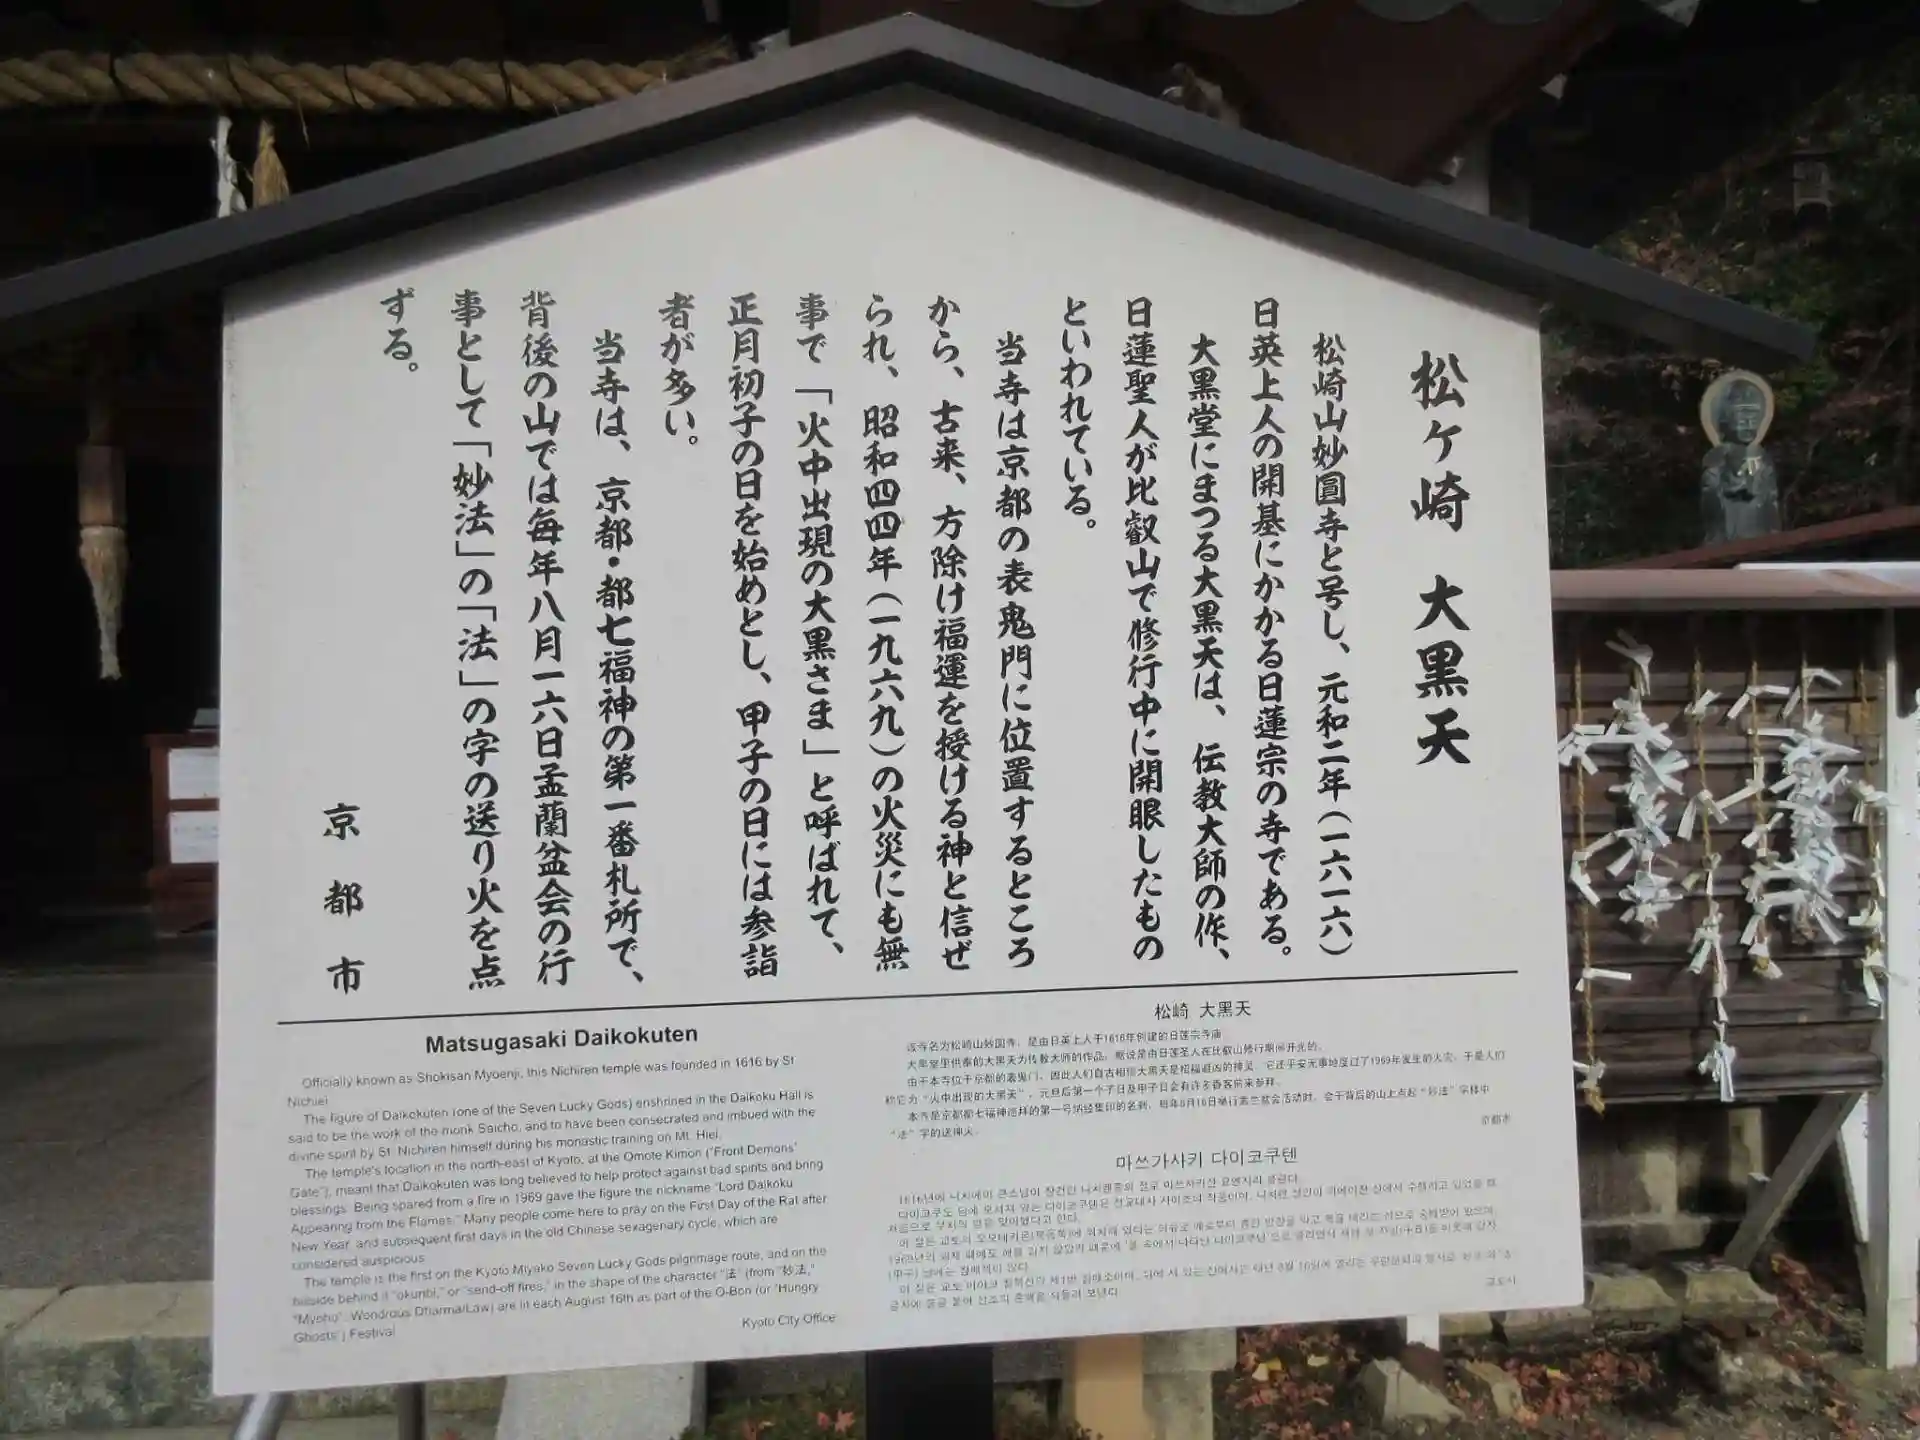 松ヶ崎 大黒天
松崎山妙圓寺と号し、元和二年(一六一六)
日英上人の開基にかかる日蓮宗の寺である。
大黒堂にまつる大黒天は、伝教大師の作、
日蓮聖人が比叡山で修行中に開眼したもの
といわれている。
当寺は京都の表鬼門に位置するところ
から、古来、方除け福運を授ける神と信ぜ
られ、昭和四四年(一九六九)の火災にも無
事で「火中出現の大黒さま」と呼ばれて、
正月初子の日を始めとし、甲子の日には参詣
者が多い。
当寺は、京都・都七福神の第一番札所で、
背後の山では毎年八月一六日盂蘭盆会の行
事として「妙法」の「法」の字の送り火を点
ずる。
京都市
Matsugasaki Daikokuten
Officially known as Shokisan Myoenji, this Nichiren temple was founded in 1616 by St.
Nichiei.
The figure of Daikokuten (one of the Seven Lucky Gods) enshrined in the Daikoku Hall is
said to be the work of the monk Saicho, and to have been consecrated and imbued with the
divine spirit by St. Nichiren himself during his monastic training on Mt. Hiei.
The temple's location in the north-east of Kyoto, at the Omote Kimon ("Front Demons'
Gate"), meant that Daikokuten was long believed to help protect against bad spirits and bring
blessings. Being spared from a fire in 1969 gave the figure the nickname "Lord Daikoku
Appearing from the Flames." Many people come here to pray on the First Day of the Rat after
New Year, and subsequent first days in the old Chinese sexagenary cycle, which are
considered auspicious.
The temple is the first on the Kyoto Miyako Seven Lucky Gods pilgrimage route, and on the
hillside behind it "okuribi," or "send-off fires," in the shape of the character "法" (from "妙法,"
"Myoho": Wondrous Dharma/Law) are lit each August 16th as part of the O-Bon (or 'Hungry
Ghosts') Festival.
Kyoto City Office
松崎 大黑天
该寺名为松崎山妙圆寺，是由日英上人于1616年创建的日莲宗寺庙。
大黑堂里供奉的大黑天为传教大师的作品，据说是由日莲圣人在比叡山修行期间开光的。
由于本寺位于京都的表鬼门，因此人们自古相信大黑天是招福避凶的神灵。它还平安无事地度过了1969年发生的火灾，于是人们
称它为“火中出现的大黑天”，元旦后第一个子日及甲子日会有许多香客前来参拜。
本寺是京都都七福神巡拜的第一号纳经集印的名刹，每年8月16日举行盂兰盆会活动时，会于背后的山上点起“妙法”字样中
“法”字的送神火。
京都市
마쓰가사키 다이코쿠텐
교토시